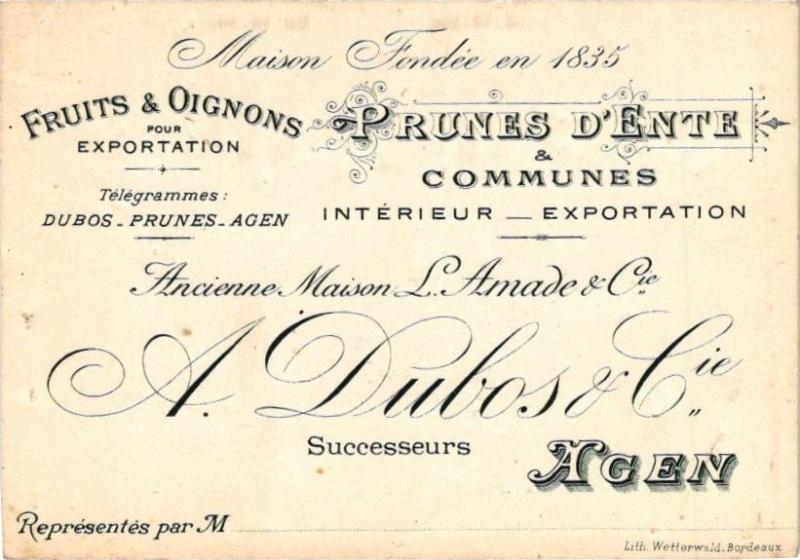 Maison Fondée en 1835
FRUITS & OIGNONS
POUR
EXPORTATION
Télégrammes:
DUBOS_PRUNES_AGEN
PRUNES D'ENTE
&
COMMUNES
INTÉRIEUR _ EXPORTATION
Ancienne Maison L. Amade & Cie
A. Dubos & Cie
Successeurs
AGEN
Représentés par M
Lith. Wetterwald. Bordeaux